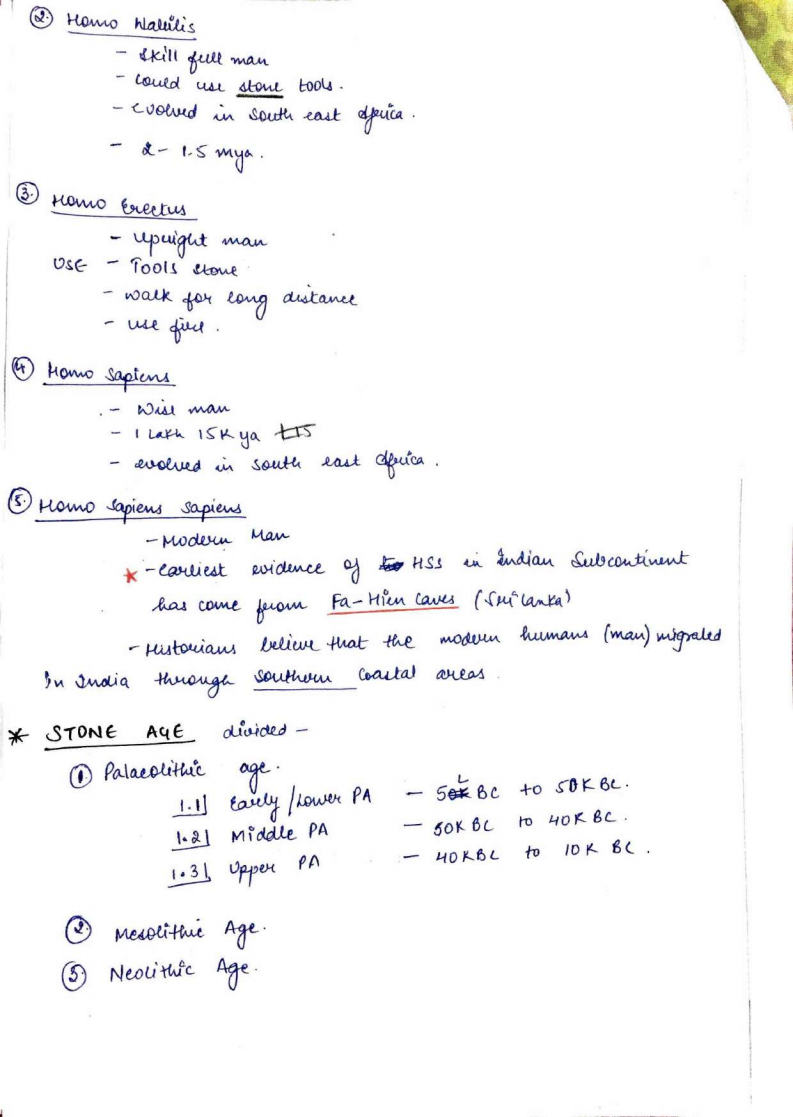 2. Homo Habilis
- skill full man
- could use stone tools.
- evolved in south east Africa.
- 2 - 1.5 mya.
3. Homo Erectus
- upright man
USE - Tools stone
- walk for long distance
- use fire.
4 Homo Sapiens
- Wise man
- 1 Lakh 15K ya
- evolved in south east Africa.
5. Homo Sapiens Sapiens
- Modern Man
* - Earliest evidence of HSS in Indian Subcontinent
has come from Fa-Hien Caves (Sri Lanka)
- Historians believe that the modern humans (man) migrated
In India through southern Coastal areas.
* STONE AGE divided -
1. Palaeolithic age.
1.1 Early/Lower PA - 5L BC to 50K BC.
1.2 Middle PA - 50K BC to 40K BC.
1.3 Upper PA - 40K BC to 10K BC.
2. Mesolithic Age.
3 Neolithic Age.